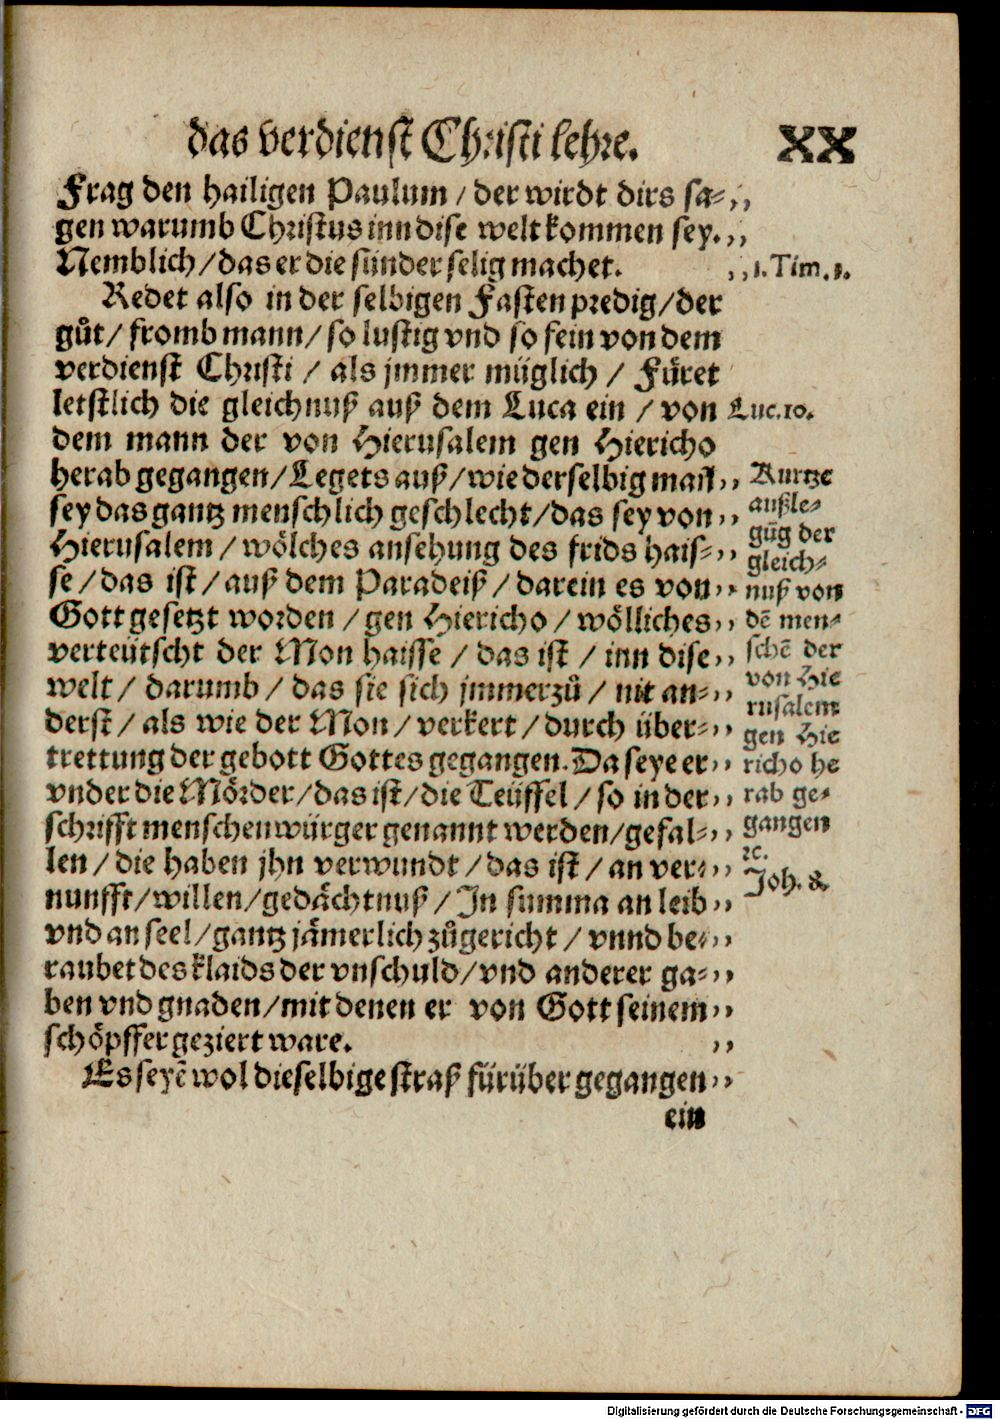 das verdienst Christi lehre. XX
Frag den hailigen Paulum / der wirdt dirs sa⸗,,
gen warumb Christus inn dise welt kommen sey.,,
Nemblich / das er die sünder selig machet. ,,1.Tim.1.
Redet also in der selbigen Fasten predig / der
gůt / fromb mann / so lustig vnd so fein von dem
verdienst Christi / als jmmer müglich / Füret
letstlich die gleichnuß auß dem Luca ein / von Luc.10.
dem mann der von Hierusalem gen Hiericho
herab gegangen / Legets auß / wie derselbig mañ,,
sey das gantz menschlich geschlecht / das sey von,,
Hierusalem / wölches ansehung des frids hais⸗,,
se / das ist / auß dem Paradeiß / darein es von,,
Gott gesetzt worden / gen Hiericho / wölliches,,
verteütscht der Mon haisse / das ist / inn dise,,
welt / darumb / das sie sich jmmerzů / nit an⸗,,
derst / als wie der Mon / verkert / durch über⸗,,
trettung der gebott Gottes gegangen. Da seye er,,
vnder die Mörder / das ist / die Teüffel / so in der,,
schrifft menschen würger genannt werden / gefal⸗,,
len / die haben jhn verwundt / das ist / an ver⸗,,
nunfft / willen / gedächtnuß / In summa an leib,,
vnd an seel / gantz jämerlich zůgericht / vnnd be⸗,,
raubet des klaids der vnschuld / vnd anderer ga⸗,,
ben vnd gnaden / mit denen er von Gott seinem,,
schöpffer geziert ware. ,,
Es seyē wol dieselbige straß fürüber gegangen,,
ein
Kurtze
außle⸗
gūg der
gleich⸗
nuß von
dē men⸗
schē der
von Hie
rusalem
gen Hie
richo he
rab ge⸗
gangen
ꝛc.
Joh. 8.
Digitalisierung gefördert durch die Deutsche Forschungsgemeinschaft - DFG